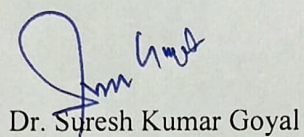 Dr. Suresh Kumar Goyal